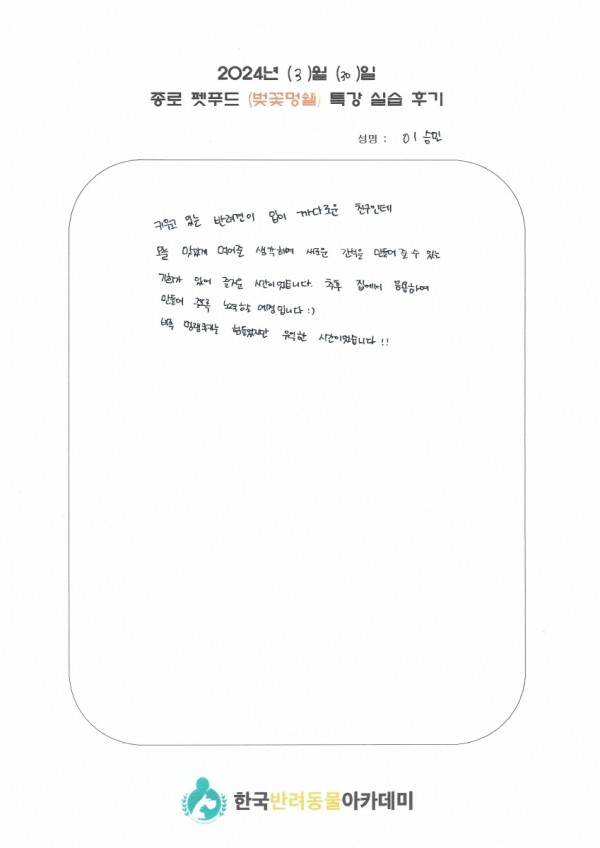 2024년 (3)월 (30)일
종로 펫푸드 (벚꽃멍쉘) 특강 실습 후기
성명 : 이승민
키우고 있는 반려견이 입이 까다로운 친구인데
오늘 맛있게 먹어줄 생각하며 새로운 간식을 만들어 줄 수 있는
기회가 있어 즐거운 시간이었습니다. 추후 집에서 응용하여
만들어 주도록 노력하는 예정입니다 :)
힘들었지만 유익한 시간이었습니다!!
한국반려동물아카데미